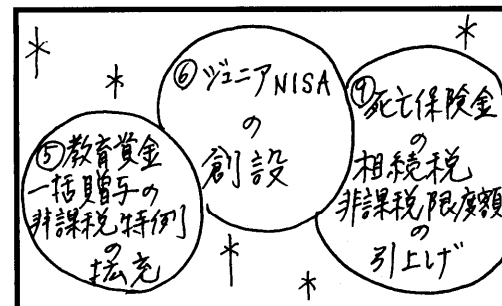 ⑤教育資金
一括贈与の
非課税特例
の
拡充
⑥ジュニアNISA
の
創設
⑨死亡保険金
の
相続税
非課税限度額
の
引上げ